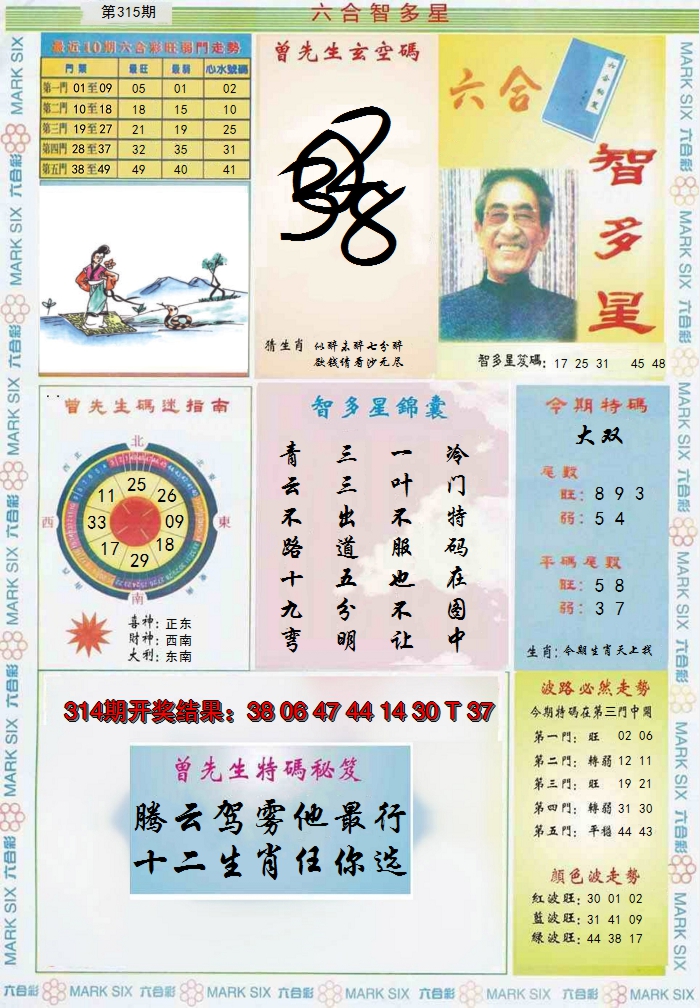 第315期
六合智多星
最近10期六合彩旺弱門走勢
門類 最旺 最弱 心水號碼
第一門 01至09 05 01 02
第二門 10至18 18 15 10
第三門 19至27 21 19 25
第四門 28至37 32 35 31
第五門 38至49 49 40 41
曾先生玄空碼
猜生肖 似醉未醉七分醉
欲钱情看沙无尽
六合
智多星
智多星笈碼: 17 25 31 45 48
曾先生碼迷指南
北
東
南
西
25
26
09
18
29
17
33
11
喜神: 正东
财神: 西南
大利: 东南
智多星錦囊
冷门特码在图中
一叶不服也不让
三三出道五分明
青云不路十九弯
今期特碼
大双
尾數
旺: 8 9 3
弱: 5 4
平碼尾數
旺: 5 8
弱: 3 7
生肖: 今期生肖天上找
314期开奖结果: 38 06 47 44 14 30 T 37
曾先生特碼秘笈
腾云驾雾他最行
十二生肖任你选
波路必然走勢
今期特碼在第三門中開
第一門: 旺 02 06
第二門: 轉弱 12 11
第三門: 旺 19 21
第四門: 轉弱 31 30
第五門: 平穩 44 43
顏色波走勢
紅波旺: 30 01 02
藍波旺: 31 41 09
綠波旺: 44 38 17
六合彩 MARK SIX 六合彩 MARK SIX 六合彩 MARK SIX 六合彩 MARK SIX 六合彩